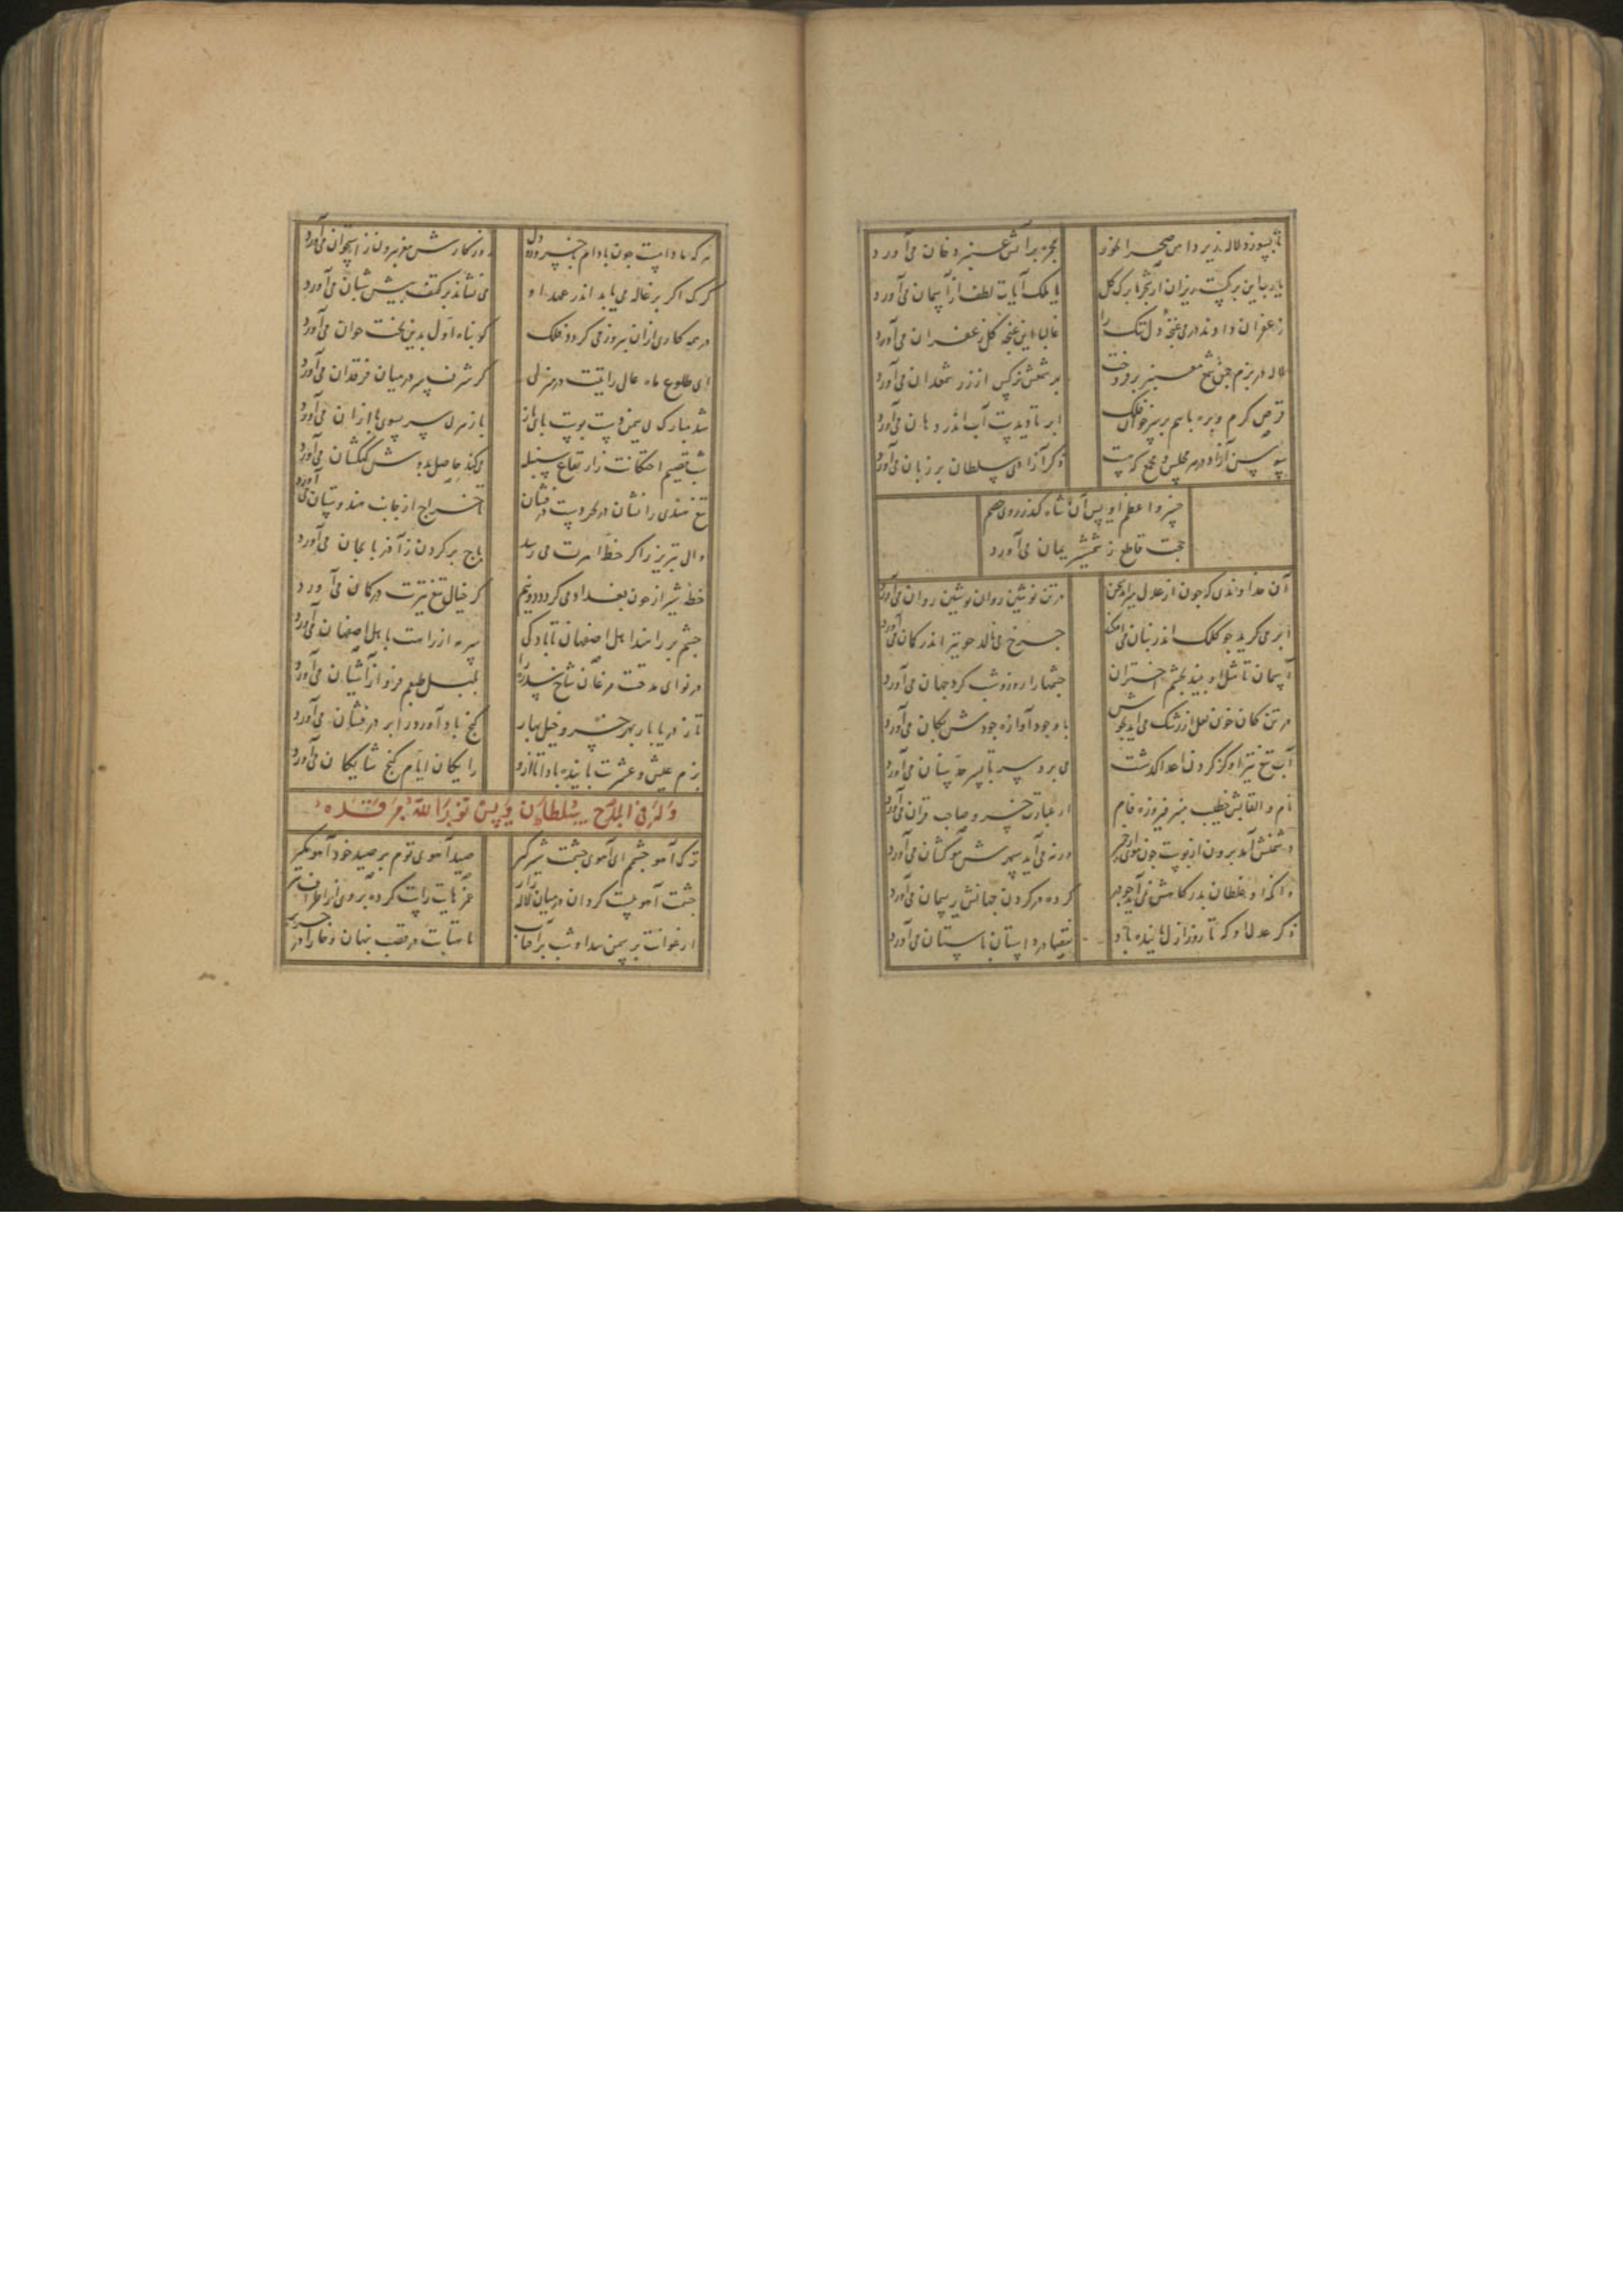 تا بسوزد لاله زیر دامن صحرا بخور
بحر بر آتش عنبر دخان می آورد
یارب این برگست ریزان از شجر یا برگ گل
یا ملک آیات لطف از آسمان می آورد
زعفران دادند در می غنچه دل تنک را
غالبا این غنچه گل زعفران می آورد
لاله در بزم چمن شمع معنبر برفروخت
شمعش نرگس از زر شمعدان می آورد
قرص گرم و بره با هم بر سر خوان فلک
ابر تا دیدست آب اندر دهان می آورد
سوسن آزاد در هر مجلس و مجمع که هست
ذکر آزادی سلطان بر زبان می آورد
خسرو اعظم اویس آن شاه کز روی خصم
حجت قاطع ز شمشیر یمان می آورد
آن خداوندی که چون از عدل میراند سخن
در تن نوشین روان نوشین روان می آورد
ابر می گرید چو کلک اندر بنان می افکند
چرخ می نالد چو تیر اندر کمان می آورد
آسمان تا مثل او بیند بچشم اختران
چشمها را روز و شب گرد جهان می آورد
در تن کان خون لعل از رشک می آید بجوش
باد چون آوازه جودش بکان می آورد
آب تیغ تیز او کز گردن اعدا گذشت
می برد سر تا سر حد بنان می آورد
نام و القابش خطیب منبر فیروزه فام
از عبارت خسرو صاحب قران می آورد
دشمنش آمد برون از پوست چون موی از خمیر
ورنه می آید سپهرش موکشان می آورد
وانکه او غلطان بدرگاهش نمی آید چو در
کرده در گردن جهانش ریسمان می آورد
ذکر عدل او که تا روز ازل پاینده باد
داستان باستان می آورد
هر که با دامت چون بادام خسرو دو دل
روزگارش مغز بیرون ز استخوان می آورد
گرگ اگر بزغاله می یابد اندر عهد او
می نشاند بر کتف پیش شبان می آورد
در همه کاری ازان پیروز می گردد فلک
کو پناه اول بدین بخت جوان می آورد
ای طلوع ماه عالی رایتت در منزلی
کز شرف سر در میان فرقدان می آورد
شد مبارک
باز سر بسوی
شد قسیم احتکانت ز ارتفاع سنبله
می کند حاصل بدوش کهکشان می آورد
تیغ هندی را نشان در
تا خراج از جانب هندوستان می آورد
والی تبریز را گر خط امرت می رسد
باج بر گردن ز آذربایجان می آورد
خط شیراز خون بغداد می گردد دو نیم
گر خیال تیغ تیزت در کمان می آورد
چشم بر راهند اهل اصفهان تا باد کی
سرمه از راهت باهل اصفهان می آورد
در نوای مدحت مرغان شاخ سدره را
بلبل طبعم فرو از آشیان می آورد
تا ز دریا بار بهر خسرو خیل بهار
گنج باد آورد ابر درفشان می آورد
بزم عیش و عشرت پاینده بادا تا ازو
رایگان ایام گنج شایگان می آورد
وله فی المدح سلطان اویس نور الله مرقده
ترک آهو چشم ای آهوی چشمت شیرگیر
صید آهوی توم بر صید خود آهو مگیر
چشمت آهوییست گردان در میان لاله زار
کرده بروی از اطراف
ارغوانت بر سمن پیدا و شب بر آفتاب
تا بتابت در قصب پنهان و خارا در حریر